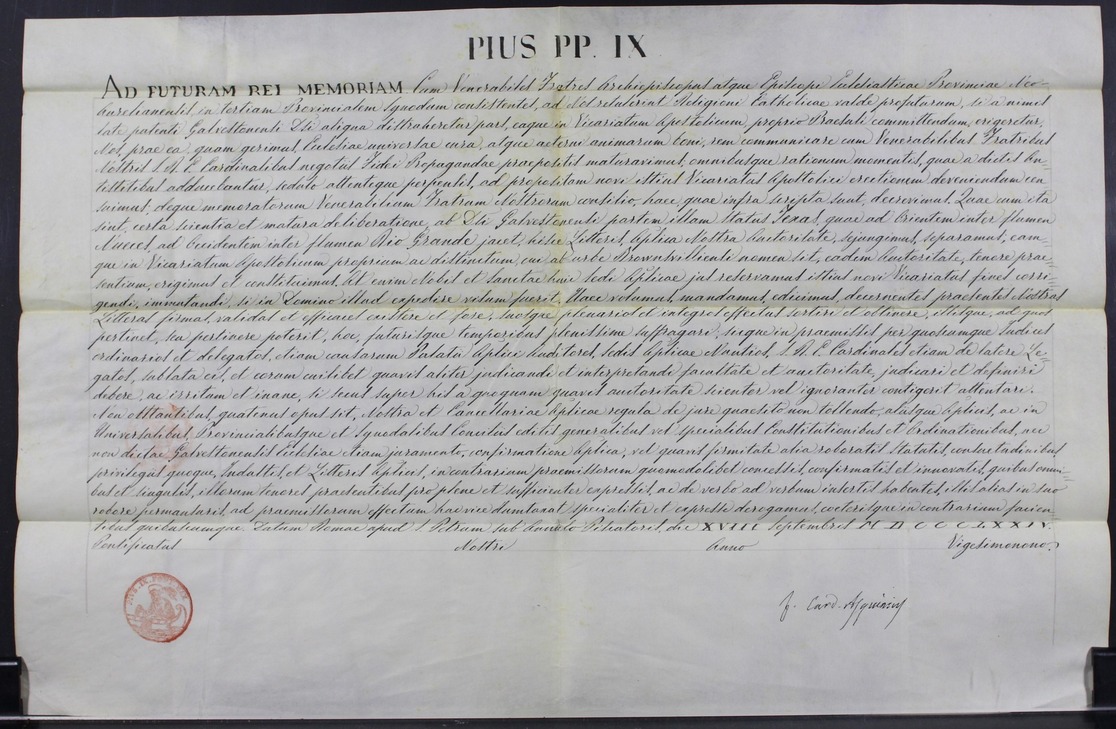 PIUS PP. IX
AD FUTURAM REI MEMORIAM. Cum Venerabiles Fratres Archiepiscopus atque Episcopi Ecclesiasticae Provinciae Neo-
Aurelianensis, in tertiam Provincialem Synodum consistentes, ad Nos retulerint Religioni Catholicae valde profuturum, si a nimis
late patenti Galvestonensi Dsi aliqua distraheretur pars, eaque in Vicariatum Apostolicum, proprio Praesuli committendum, erigeretur,
Nos, prae ea, quam gerimus Ecclesiae universae cura, atque aeterni animarum boni, rem communicare cum Venerabilibus Fratribus
Nostris S. R. E. Cardinalibus negotiis Fidei Propagandae praepositis maturavimus, omnibusque rationum momentis, quae a dictis An-
tistitibus adducebantur, sedulo attenteque perpensis, ad propositam novi istius Vicariatus Apostolici erectionem deveniendum cen-
suimus, deque memoratorum Venerabilium Fratrum Nostrorum consilio, haec quae infra scripta sunt, decrevimus. Quae cum ita
sint, certa scientia et matura deliberatione, ab Dsi Galvestonensi partem illam Status Texas, quae ad Orientem inter flumen
Nueces, ad Occidentem inter flumen Rio Grande jacet, hisce Litteris, Aplica Nostra Auctoritate, sejungimus, separamus, eam-
que in Vicariatum Apostolicum proprium ac distinctum, cui ab urbe Brownsvillensi nomen sit, eadem Auctoritate, tenore prae-
sentium, erigimus et constituimus. At enim Nobis et Sanctae huic Sedi Aplicae jus reservamus istius novi Vicariatus fines corri-
gendi, immutandi, si in Domino illud expedire visum fuerit. Haec volumus, mandamus, edicimus, decernentes praesentes Nostras
Litteras firmas, validas et efficaces existere et fore, suosque plenarios et integros effectus sortiri et obtinere, illisque, ad quos
pertinet, seu pertinere poterit, hoc, futurisque temporibus plenissime suffragari; sicque in praemissis per quoscumque Judices
ordinarios et delegatos, etiam causarum Palatii Aplici Auditores, Sedis Aplicae Nuntios, S. R. E. Cardinales etiam de latere Le-
gatos, sublata eis, et eorum cuilibet quavis aliter judicandi et interpretandi facultate et auctoritate, judicari et definiri
debere, ac irritum et inane, si secus super his a quoquam quavis auctoritate scienter vel ignoranter contigerit attentari.
Non obstantibus, quatenus opus sit, Nostra et Cancellariae Aplicae regula de jure quaesito non tollendo, aliisque Aplicis, ac in
Universalibus, Provincialibusque et Synodalibus Conciliis editis generalibus vel specialibus Constitutionibus et Ordinationibus, nec
non dictae Galvestonensis Ecclesiae etiam juramento, confirmatione Aplica, vel quavis firmitate alia roboratis Statutis, consuetudinibus
privilegiis quoque, Indultis, et Litteris Aplicis, in contrarium praemissorum quomodolibet concessis, confirmatis et innovatis, quibus omni-
bus et singulis, illorum tenores praesentibus pro plene et sufficienter expressis, ac de verbo ad verbum insertis habentes, illis alias in suo
robore permansuris, ad praemissorum effectum hac vice dumtaxat specialiter et expresse derogamus, ceterisque in contrarium facien-
tibus quibuscumque. Datum Romae apud S. Petrum, sub Annulo Piscatoris, die XVIII Septembris MDCCCLXXIV.
Pontificatus Nostri Anno Vigesimonono.
F. Card. Asquinius